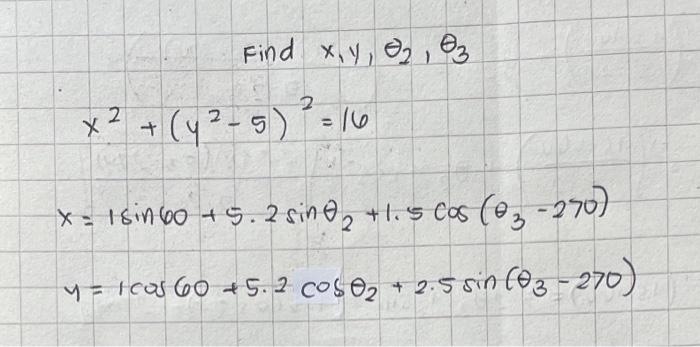 Find x, y, θ₂, θ₃
x² + (y² - 5)² = 16
x = 1 sin 60 + 5.2 sin θ₂ + 1.5 cos (θ₃ - 270)
y = 1 cos 60 + 5.2 cos θ₂ + 2.5 sin (θ₃ - 270)